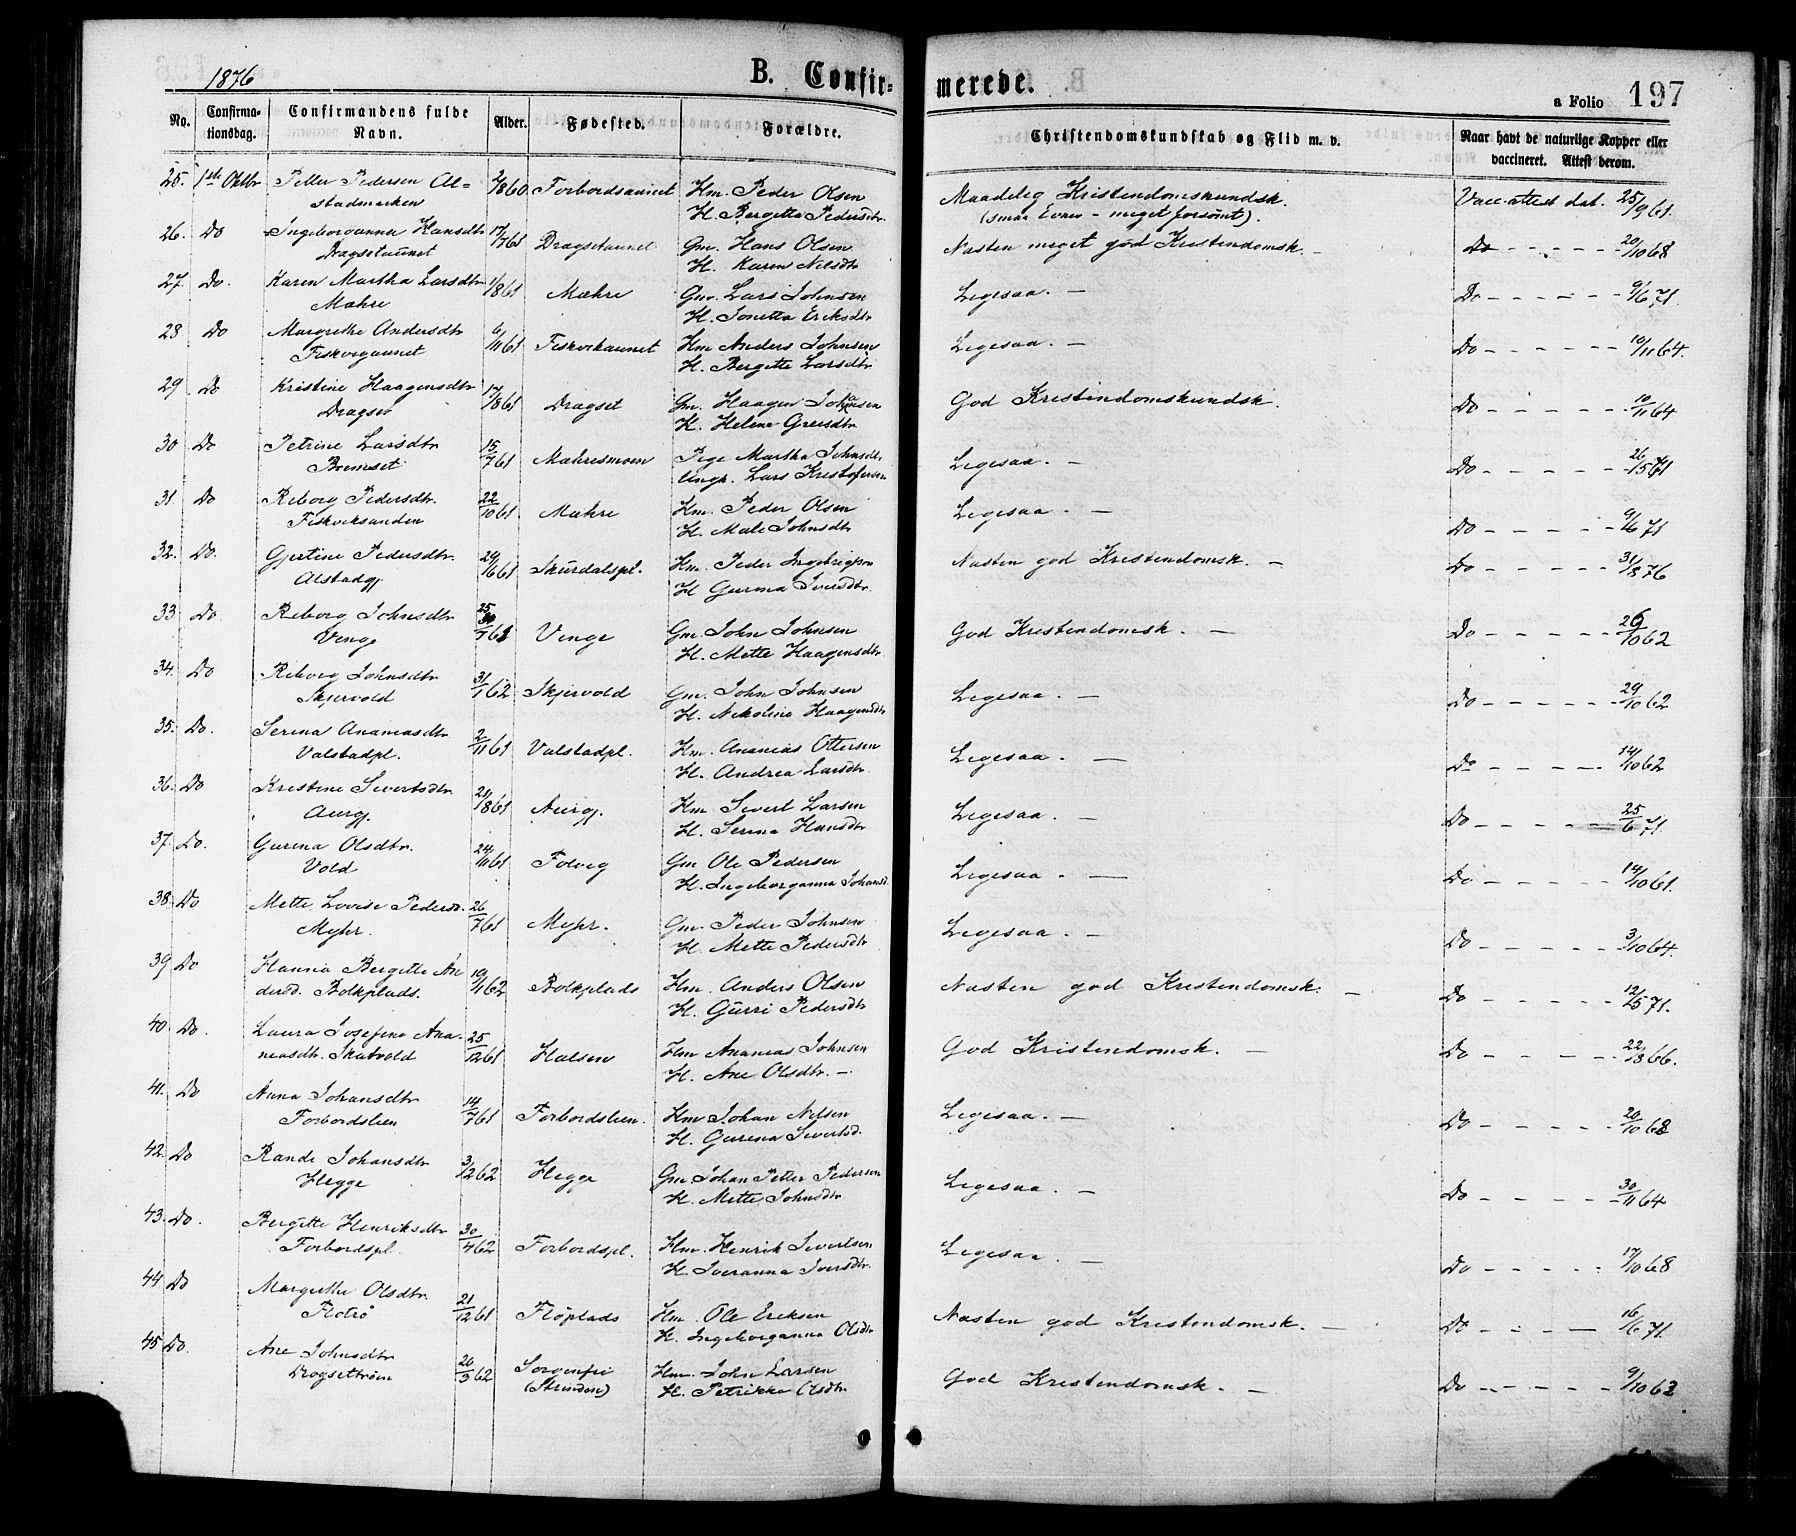 1876 B. Confirmerede. a Folio 197
No. Confirmationsdag. Confirmandens fulde Navn. Alder. Fødested. Forældre. Christendomskundskab og Flid m. v. Naar havt de naturlige Kopper eller vaccineret. Attest derom.
25. 1ste Oktbr Petter Pedersen Al- 2/860. Forbordsaunet Hm. Peder Olsen Maadelig Kristendomskundsk. Vacc. attest dat. 25/9 61.
stadmarken H. Bergitte Pedersdtr (smaa Evner – meget forsömt).
26. Do Ingeboranna Hansdtr 17/761 Dragsetaunet Gm. Hans Olsen Næsten meget god Kristendomsk. – Do – – – – 20/10 68
Dragsetaunet H. Karen Nilsdtr
27. Do. Karen Martha Larsdtr 1/861 Mæhre Gm. Lars Johnsen Ligesaa. – Do – – – – 9/6 71.
Mæhre H. Jonetta Eriksdtr
28 Do Margrethe Andersdtr 6/1161 Fiskvikaunet Hm Anders Johnsen Ligesaa. – Do – – – – 10/11 64.
Fiskvigaunet H. Bergitte Larsdtr
29 Do Kristine Haagensdtr 17/861 Dragset Gm. Haagen Johnsen God Kristendomskundsk. Do – – – – 10/11 64
Dragset H. Helene Greisdtr
30 Do Petrine Larsdtr 15/761 Mæhresmoen Pige Martha Johnsdtr Ligesaa. – Do – – – – 26/5 71
Bremset Ungk. Lars Kristofersen
31 Do Reborg Pedersdtr. 22/1061 Mæhre Hm. Peder Olsen Ligesaa. – Do – – – – 9/6 71
Fiskviksanden H. Male Johnsdtr
32. Do. Gjertine Pedersdtr. 29/661 Skurdalspl. Hm. Peder Ingebrigtsen Næsten god Kristendomsk. – Do – – – – 31/8 76
Alstadgj. H Gurina Iversdtr.
33. Do Reborg Johnsdtr 25/162 Vinge Gm John Johnsen God Kristendomsk. – Do – – – – 26/10 62
Vinge H. Mette Haagensdtr
34. Do Reborg Johnsdtr 31/162 Skjervold Gm. John Johnsen Ligesaa. – Do – – – – 29/10 62
Skjervold H. Nikoline Haagensdtr
35. Do. Serina Ananiasdtr 2/1161 Valstadpl. Hm. Ananias Ottersen Ligesaa. – Do – – – – 14/10 62
Valstadpl. H. Andrea Larsdtr.
36. Do Kristine Sivertsdtr 21/861 Aurgj. Hm Sivert Larsen Ligesaa. – Do – – – – 25/6 71.
Aurgj. H. Serina Hansdtr
37. Do. Gurina Olsdtr. 24/1161 Folvig Gm Ole Pedersen Ligesaa. – Do – – – – 14/10 61.
Vold H. Ingeboranna Johansd.
38. Do Mette Lovise Pedersd. 26/761 Myhr. Gm. Peder Johnsen Ligesaa. – Do – – – – 3/10 64.
Myhr. H. Mette Pedersdtr
39 Do Hanna Bergitte An- 19/162 Bolkplads Hm. Anders Olsen Næsten god Kristendomsk. – Do – – – – 12/5 71.
dersd. Bolkplads. H. Gurri Pedersdtr
40. Do. Laura Josefine Ana- 25/1261 Halsen Hm Ananias Johnsen God Kristendomsk. – Do – – – – 22/8 66.
niasdtr. Skatvold H. Ane Olsdtr. –
41. Do Anna Johansdtr 14/761 Forbordslien. Hm Johan Nilsen Ligesaa. – Do – – – – 20/10 68
Forbordslien H. Gurina Sivertsd.
42. Do Rande Johansdtr 3/1262 Hegge Gm Johan Petter Pedersen Ligesaa. – Do – – – – 30/11 64
Hegge H. Mette Johnsdtr
43. Do. Bergitte Henriksdtr 30/462 Forbordspl. Hm. Henrik Sivertsen Ligesaa – Do – – – – 17/10 68
Forbordspl. H. Iveranna Iversdtr.
44. Do Margrethe Olsdtr. 21/1261 Flöplads Hm. Ole Eriksen Næsten god Kristendomsk. – Do – – – – 16/6 71.
Flotrö H. Ingeboranna Olsdtr
45. Do. Ane Johnsdtr 26/362 Sorgenfri Hm. John Larsen God Kristendomsk. – Do – – – – 9/10 62
Dragsettrøen (Strinden) H. Petrikke Olsdtr.